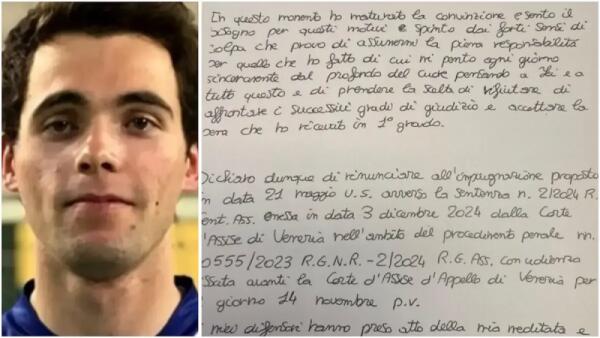 In questo momento ho maturato la convinzione e sento il
bisogno per questi motivi e spinto dai forti sensi di
colpa che provo di assumermi la piena responsabilità
per quello che ho fatto di cui mi pento ogni giorno
sinceramente dal profondo del cuore pensando a e a
tutti questo e di prendere la scelta di rifiutare di
affrontare i successivi gradi di giudizio e accettare la
pena che ho ricevuto in 1° grado.
Dichiaro dunque di rinunciare all'impugnazione proposta
in data 21 maggio u.s. avverso la sentenza n. 2/2024 R.
ent. Ass. emessa in data 3 dicembre 2024 dalla Corte
d'Assise di Venezia nell'ambito del procedimento penale nn.
0555/2023 R.G.N.R. -2/2024 R.G. Ass. con udienza
ssata avanti la Corte d'Assise d'Appello di Venezia per
giorno 14 novembre p.v.
miei difensori hanno preso atto della mia meditata e